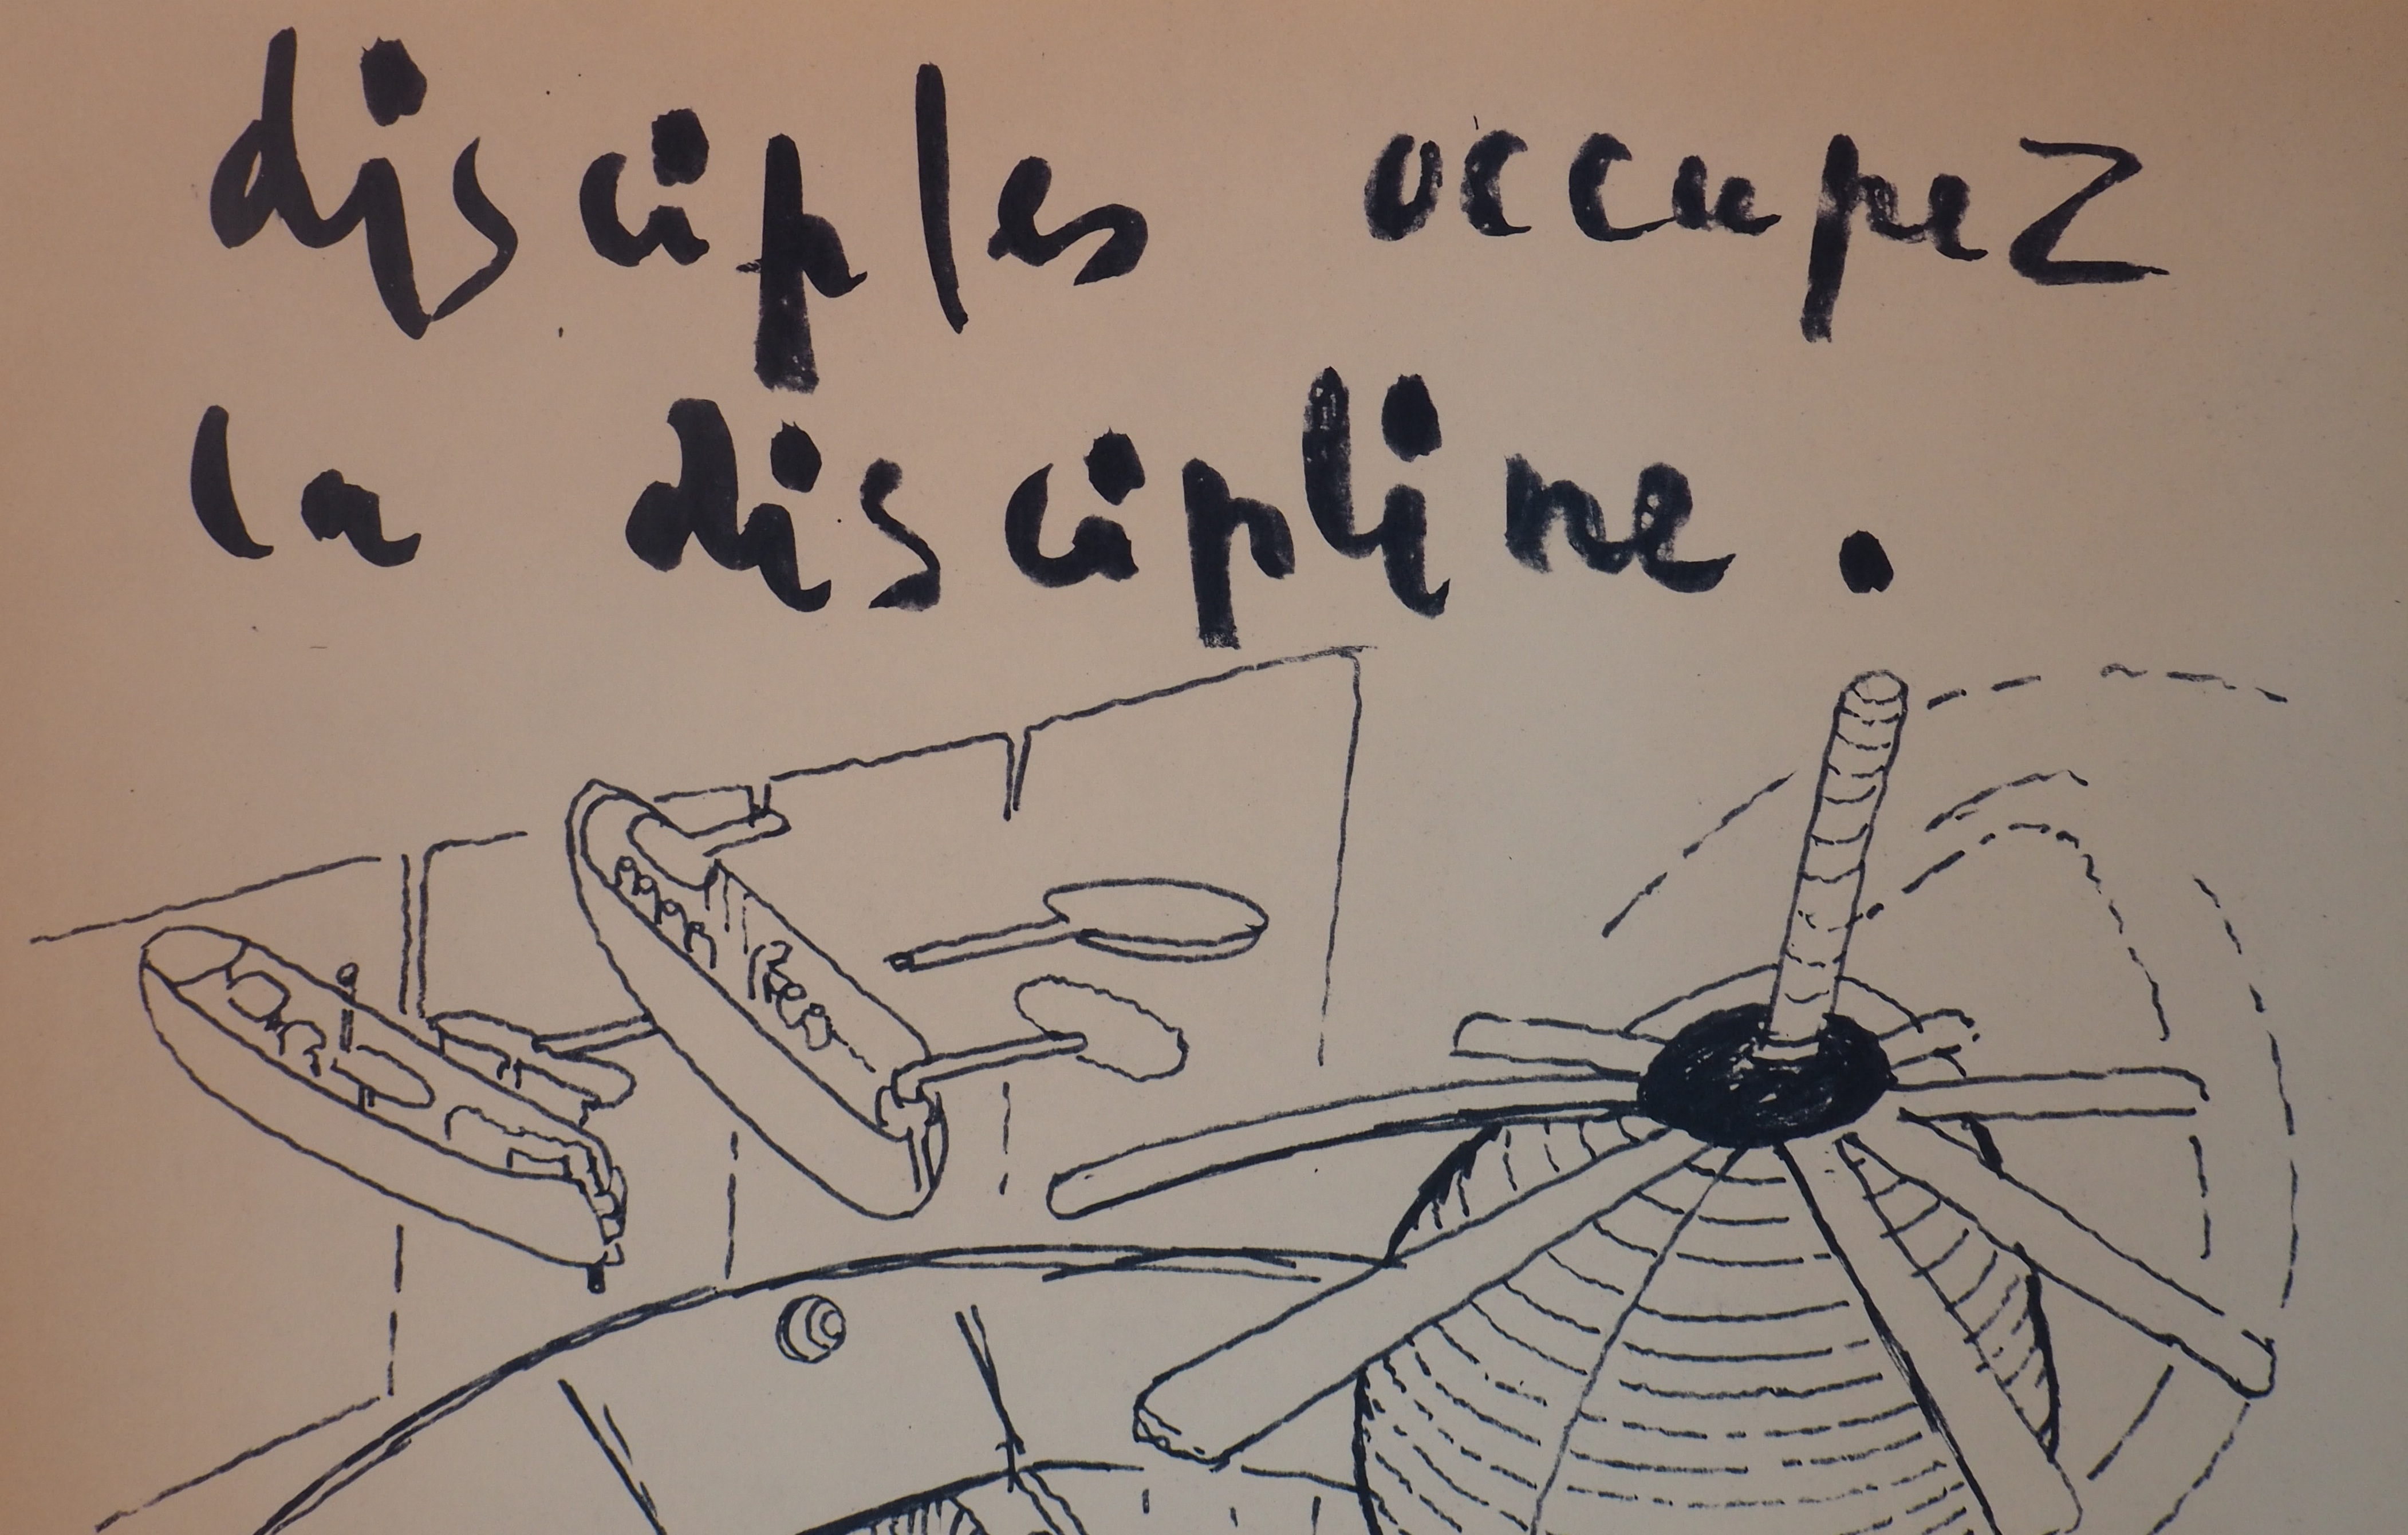 disciples occupez
la discipline.